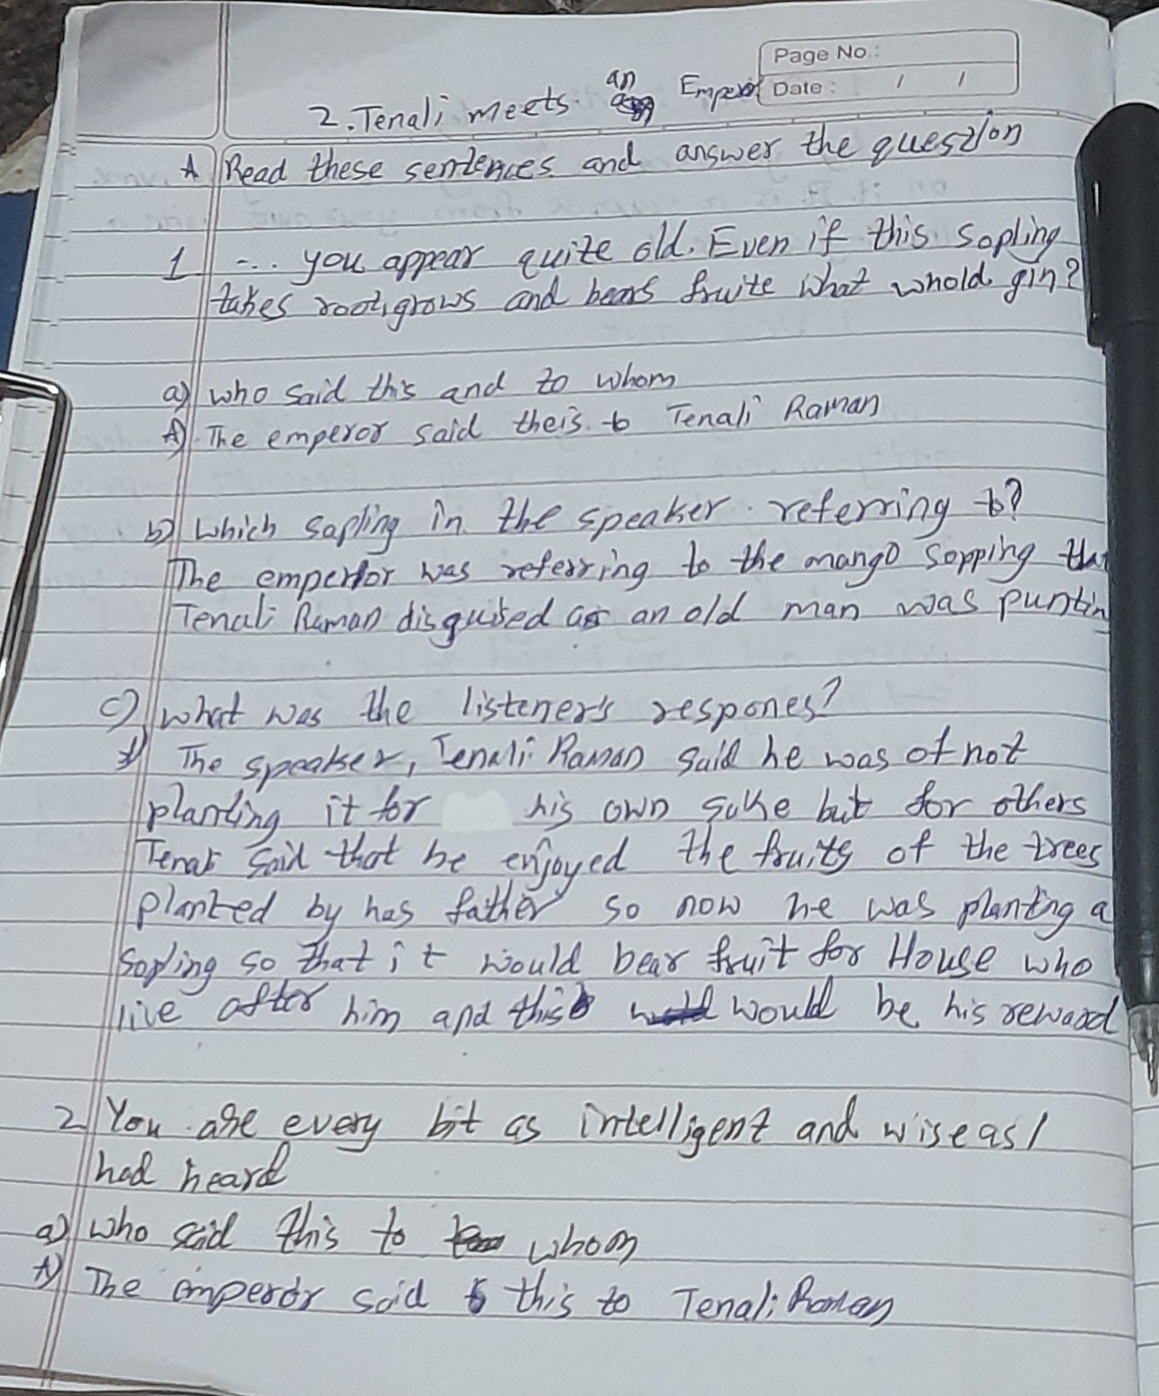 Page No.:
Date : / /
2. Tenali meets an Emperor
A Read these sentences and answer the question
1 .... you appear quite old. Even if this sapling
takes root, grows and bears fruite what whold gin?
a) who said this and to whom
A) The emperor said theis to Tenali Raman
b) Which sapling in the speaker referring to?
The emperor was referring to the mango sopping tha
Tenali Raman disguised as an old man was puntin
c) what was the listener's respones?
A) The speaker, Tenali Raman said he was of not
planting it for his own sake but for others
Tenali said that he enjoyed the fruits of the trees
planted by has father so now he was planting a
sapling so that it would bear fruit for House who
live after him and this would be his reward
2 You are every bit as intelligent and wise as I
had heard
a) who said this to whom
A) The emperor said this to Tenali Raman